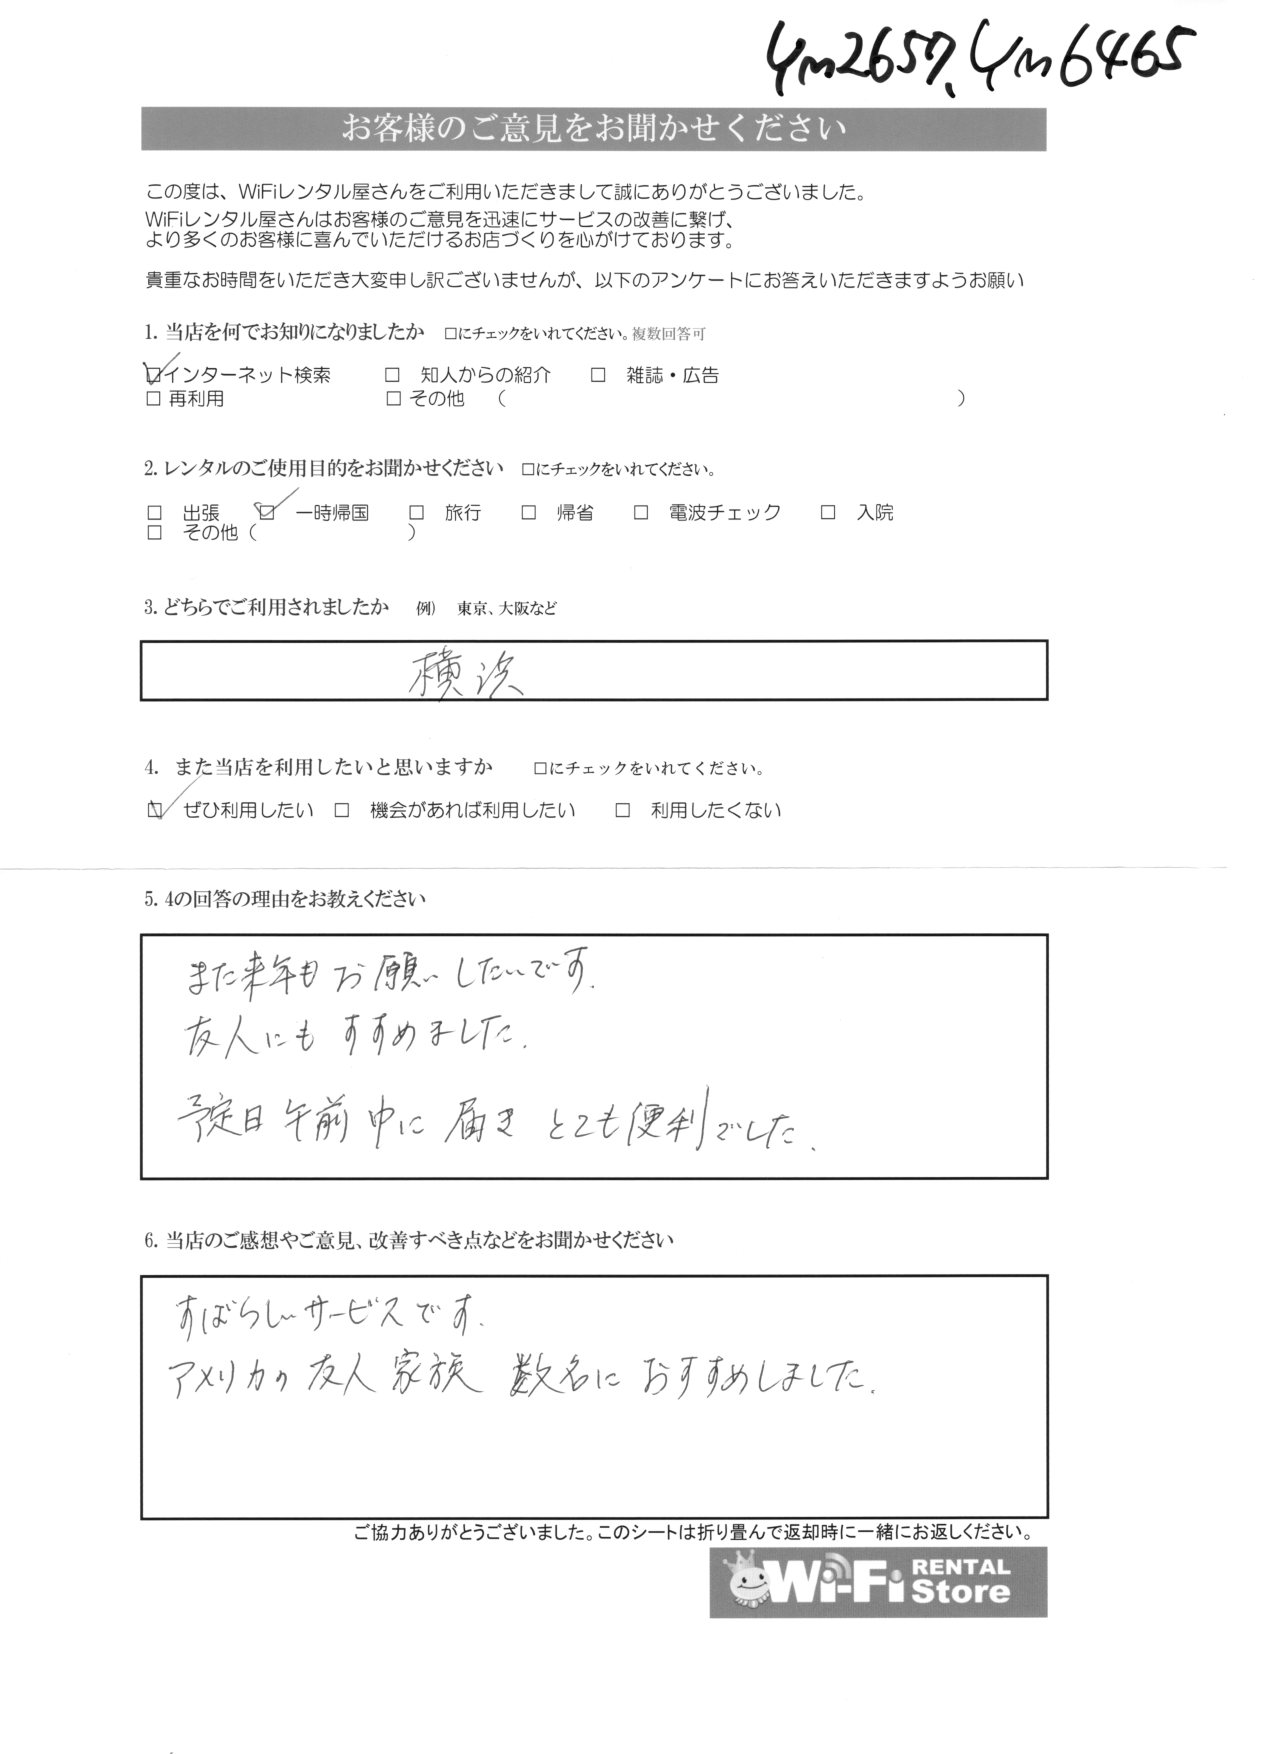 Ym2657、Ym6465
お客様のご意見をお聞かせください
この度は、WiFiレンタル屋さんをご利用いただきまして誠にありがとうございました。
WiFiレンタル屋さんはお客様のご意見を迅速にサービスの改善に繋げ、
より多くのお客様に喜んでいただけるお店づくりを心がけております。
貴重なお時間をいただき大変申し訳ございませんが、以下のアンケートにお答えいただきますようお願い
1. 当店を何でお知りになりましたか □にチェックをいれてください。複数回答可
☑インターネット検索 □ 知人からの紹介 □ 雑誌・広告
□ 再利用 □ その他 （ ）
2. レンタルのご使用目的をお聞かせください □にチェックをいれてください。
□ 出張 ☑ 一時帰国 □ 旅行 □ 帰省 □ 電波チェック □ 入院
□ その他（ ）
3. どちらでご利用されましたか 例） 東京、大阪など
横浜
4. また当店を利用したいと思いますか □にチェックをいれてください。
☑ ぜひ利用したい □ 機会があれば利用したい □ 利用したくない
5. 4の回答の理由をお教えください
また来年もお願いしたいです.
友人にもすすめました.
予定日午前中に届きとても便利でした.
6. 当店のご感想やご意見、改善すべき点などをお聞かせください
すばらしいサービスです.
アメリカの友人家族 数名におすすめしました.
ご協力ありがとうございました。このシートは折り畳んで返却時に一緒にお返しください。
Wi-Fi RENTAL Store